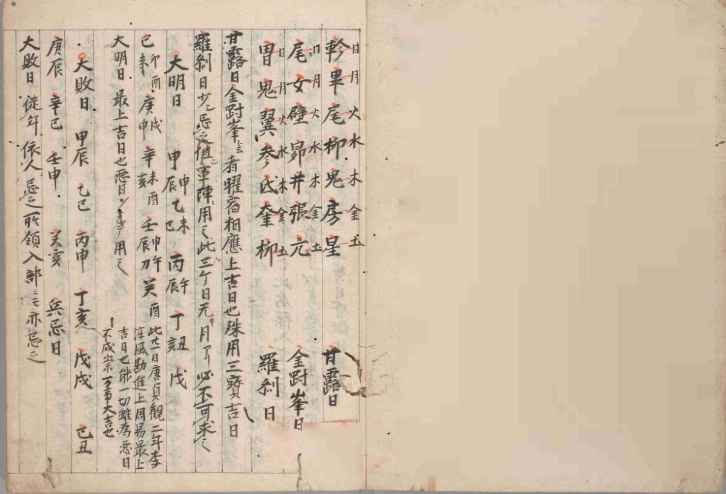 日 月 火 水 木 金 土
軫 畢 尾 柳 鬼 房 星 甘露日
日 月 火 水 木 金 土
尾 女 壁 昴 井 張 亢 金剛峯日
日 月 火 水 木 金 土
胃 鬼 翼 参 氐 奎 柳 羅刹日
甘露日金剛峯者曜宿相應上吉日也殊用三寳吉日
羅刹日少々忌之但軍陣用之此三ケ日
大明日 甲辰申 乙巳未 丙辰午 丁丑 戊
己卯酉 庚申戌 辛亥未酉 壬辰申午 癸酉 此廿一日唐貞觀二年李
淳風勘進上周易最上
吉日也能一切雖為惡日
不成祟万事大吉也
大明日 最上吉日也惡日
大敗日 甲辰 乙巳 丙申 丁亥 戊戌 己丑
庚辰 辛巳 壬申 癸亥 兵忌日
大敗日 従年依人忌之所領入部ニモ亦忌之